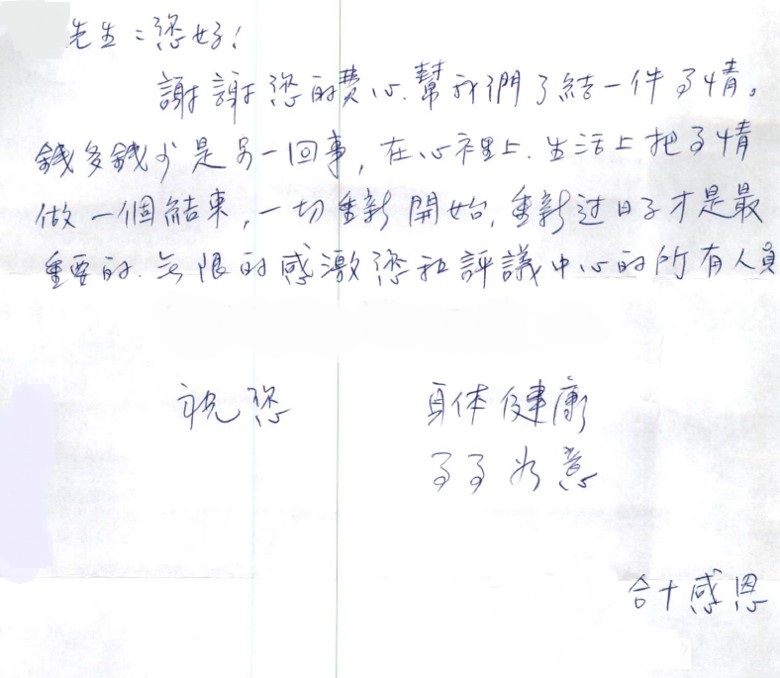 先生：您好！
謝謝您的費心.幫我們了結一件事情。
錢多錢少是另一回事，在心裡上.生活上把事情
做一個結束，一切重新開始，重新过日子才是最
重要的.无限的感激您和評議中心的所有人員
祝您 身体健康
事事如意
合十感恩